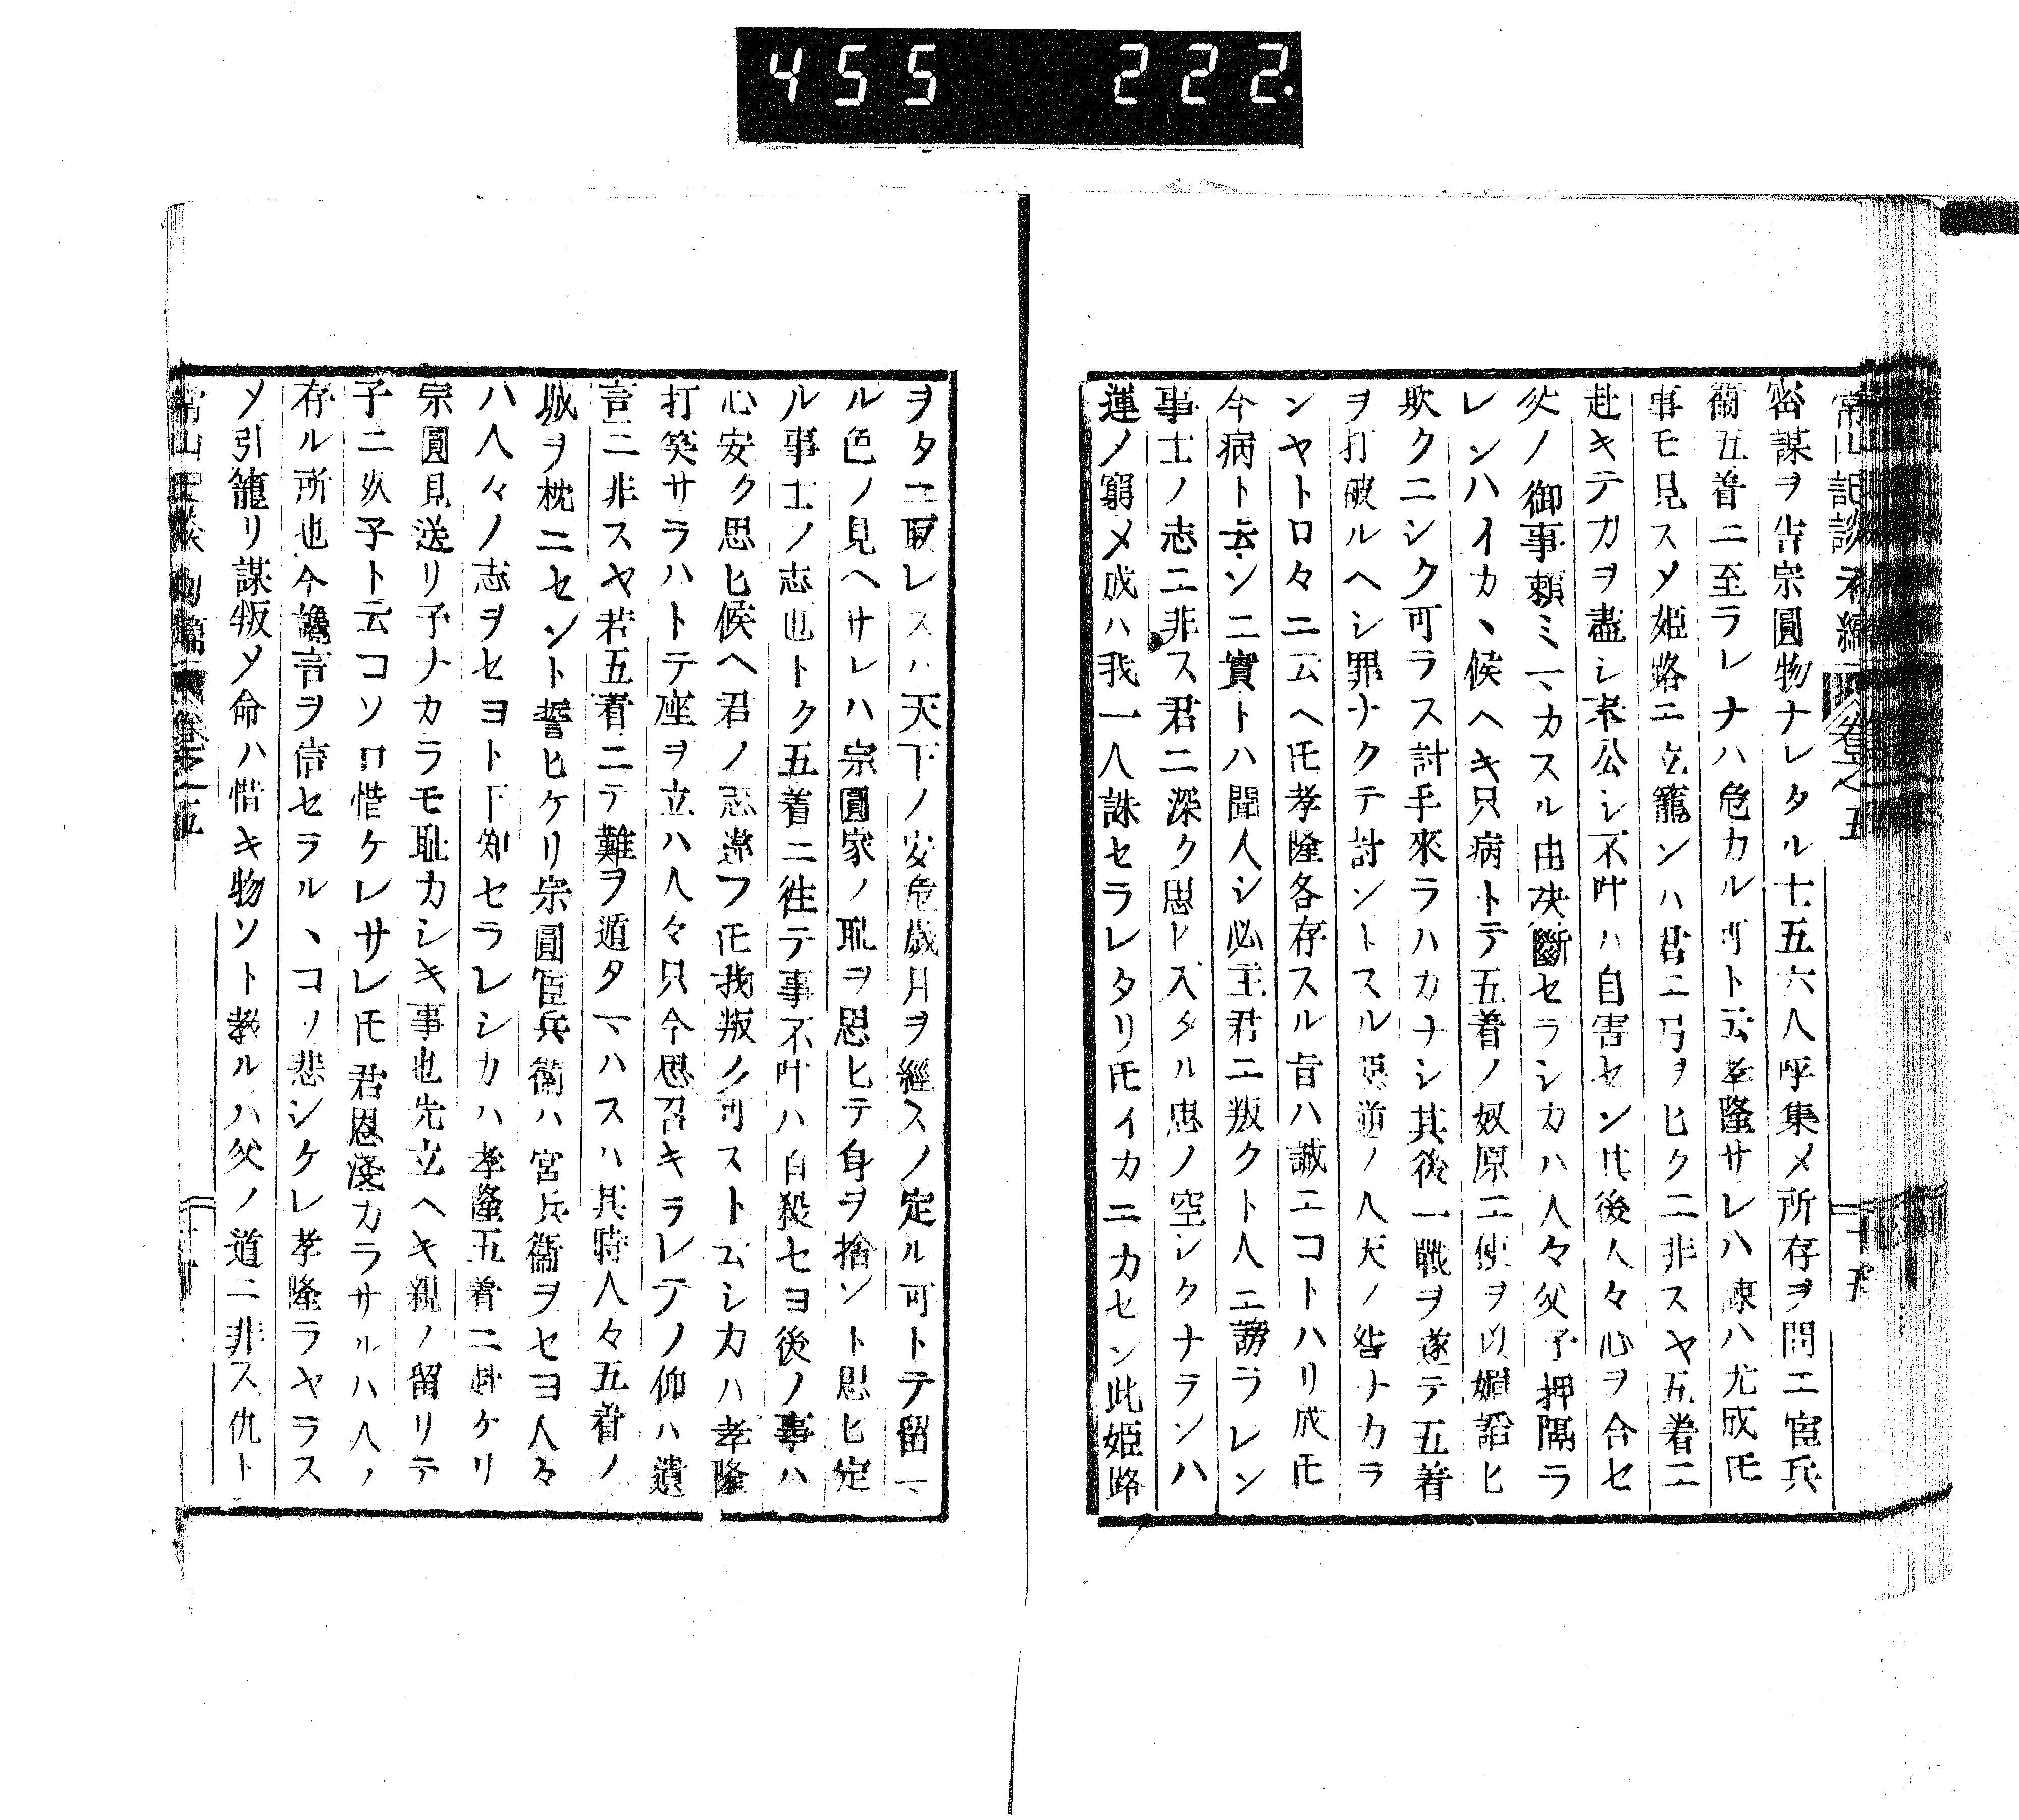 455 222.
密謀ヲ告宗圓物ナレタル士五六人呼集メ所存ヲ問ニ宦兵
衞五着ニ至ラレナハ危カル可ト云孝隆サレハ諫ハ尤成𪜈
事モ見スメ姫路ニ立籠ンハ君ニ弓ヲヒクニ非スヤ五着ニ
赴キテ力ヲ盡シ末公シ不叶ハ自害セン其後人々心ヲ合セ
父ノ御事頼ミマカスル由决斷セラシカハ人々父子押隔ラ
レンハイカヽ候ヘキ只病トテ五着ノ奴原ニ使ヲ以媚謟ヒ
欺クニシク可ラス討手來ラハカナシ其後一戰ヲ遂テ五着
ヲ打破ルヘシ罪ナクテ討ントスル惡道ノ人天ノ咎ナカラ
ンヤトロ々ニ云ヘ𪜈孝隆各存スル旨ハ誠ニコトハリ成𪜈
今病ト云ンニ實トハ聞人シ必主君ニ叛クト人ニ謗ラレン
事士ノ志ニ非ス君ニ深ク思ヒ入タル忠ノ空シクナランハ
運ノ窮メ成ハ我一人誅セラレタリ𪜈イカニカセン此姫路
ヲタニ取レスハ天下ノ安危歳月ヲ經スノ定ル可トテ留マ
ル色ノ見ヘサレハ宗圓家ノ耻ヲ思ヒテ身ヲ捨ント思ヒ定
ル事士ノ志也トク五着ニ徃テ事不叶ハ自殺セヨ後ノ事ハ
心安ク思ヒ候ヘ君ノ志違フ𪜈我叛ノ可ストムシカハ孝隆
打笑サラハトテ座ヲ立ハ人々只今思召キラレテノ仰ハ遺
言ニ非スヤ若五着ニテ難ヲ遁タマハスハ其時人々五着ノ
城ヲ枕ニセント誓ヒケリ宗圓宦兵衞ハ宮兵衞ヲセヨ人々
ハ人々ノ志ヲセヨト下知セラレシカハ孝隆五着ニ赴ケリ
宗圓見送リ予ナカラモ耻カシキ事也先立ヘキ親ノ留リテ
子ニ㕝子ト云コソロ惜ケレサレ𪜈君恩淺カラサルハ人ノ
存ル所也今讒言ヲ信セラルヽコソ悲シケレ孝隆ラヤラス
メ引籠リ謀叛メ命ハ惜キ物ソト教ルハ父ノ道ニ非ス仇ト